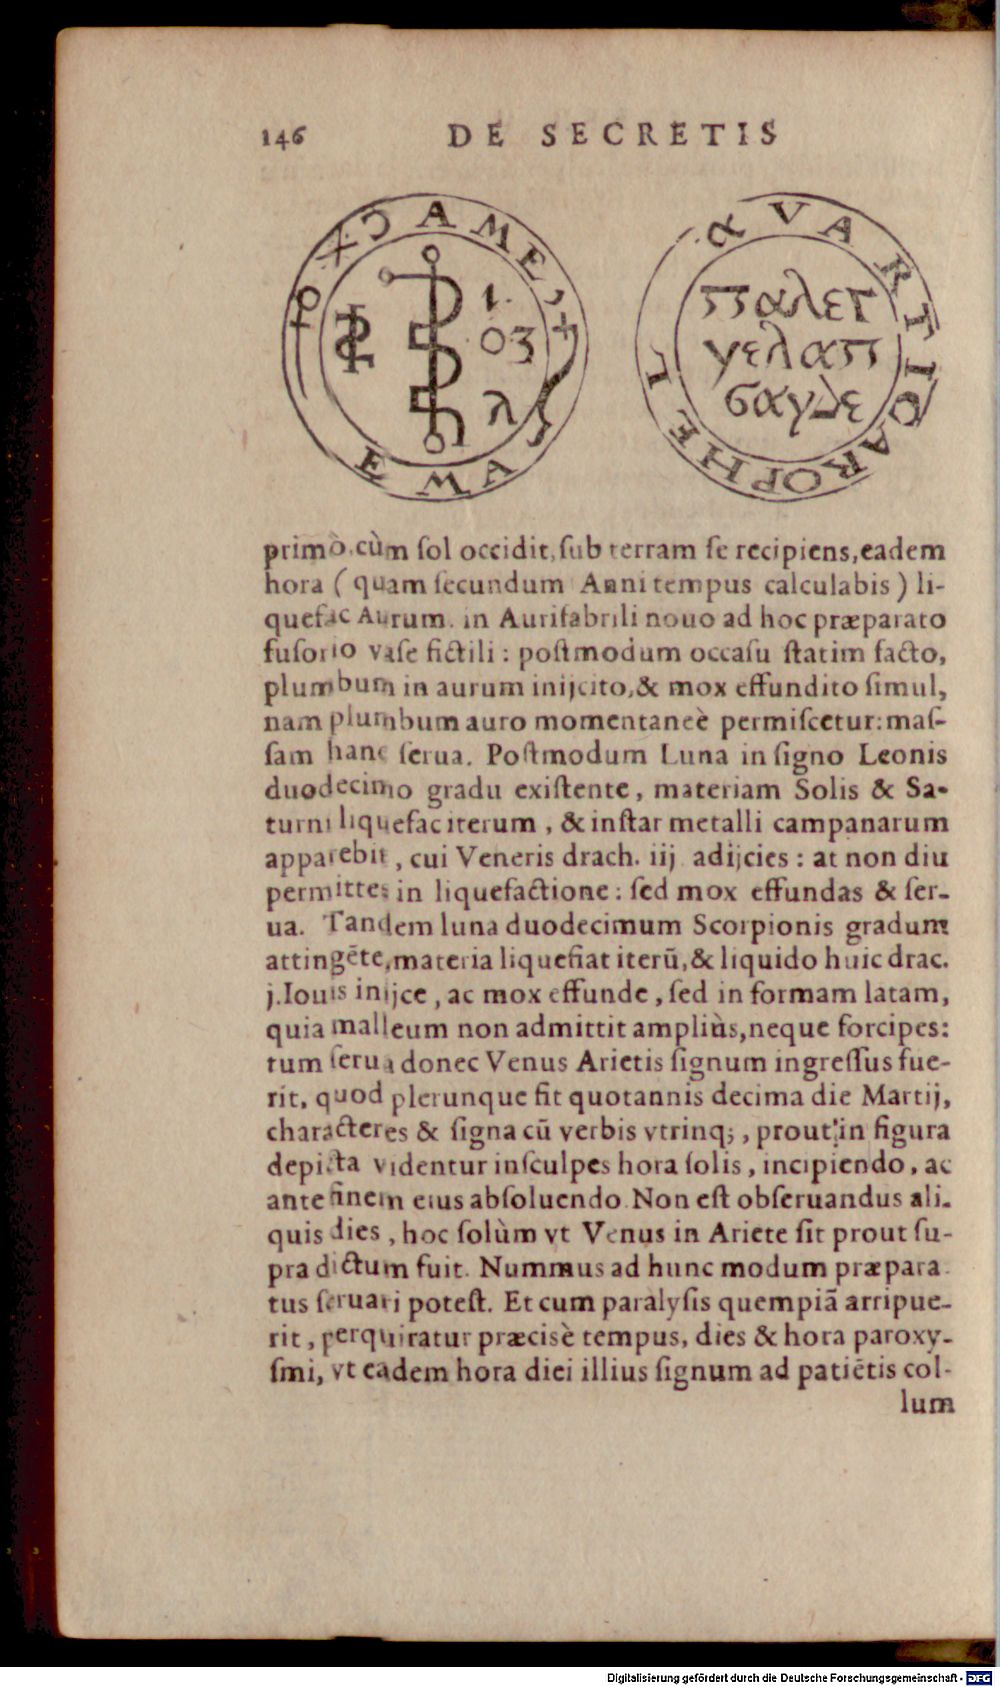 146 DE SECRETIS
AMEL
1.
03
λ
VARTICAROPHEL
παλετ
γελαπ
σαγδε
primò.cùm ſol occidit, ſub terram ſe recipiens, eadem
hora ( quam ſecundum Anni tempus calculabis ) li-
quefac Aurum. in Aurifabrili nouo ad hoc præparato
fuſorio vaſe fictili : poſtmodum occaſu ſtatim facto,
plumbum in aurum inijcito, & mox effundito ſimul,
nam plumbum auro momentaneè permiſcetur: maſ-
ſam hanc ſerua. Poſtmodum Luna in ſigno Leonis
duodecimo gradu exiſtente, materiam Solis & Sa-
turni liquefac iterum, & inſtar metalli campanarum
apparebit, cui Veneris drach. iij adijcies : at non diu
permittes in liquefactione : ſed mox effundas & ſer-
ua. Tandem luna duodecimum Scorpionis gradum
attingẽte, materia liquefiat iterũ, & liquido huic drac.
j. Iouis inijce, ac mox effunde, ſed in formam latam,
quia malleum non admittit ampliùs, neque forcipes:
tum ſerua donec Venus Arietis ſignum ingreſſus fue-
rit, quod plerunque fit quotannis decima die Martij,
characteres & ſigna cũ verbis vtrinq;, prout in figura
depicta videntur inſculpes hora ſolis, incipiendo, ac
ante finem eius abſoluendo. Non eſt obſeruandus ali-
quis dies, hoc ſolùm vt Venus in Ariete ſit prout ſu-
pra dictum fuit. Nummus ad hunc modum præpara-
tus ſeruari poteſt. Et cum paralyſis quempiã arripue-
rit, perquiratur præcisè tempus, dies & hora paroxy-
ſmi, vt eadem hora diei illius ſignum ad patiẽtis col-
lum
Digitalisierung gefördert durch die Deutsche Forschungsgemeinschaft - DFG